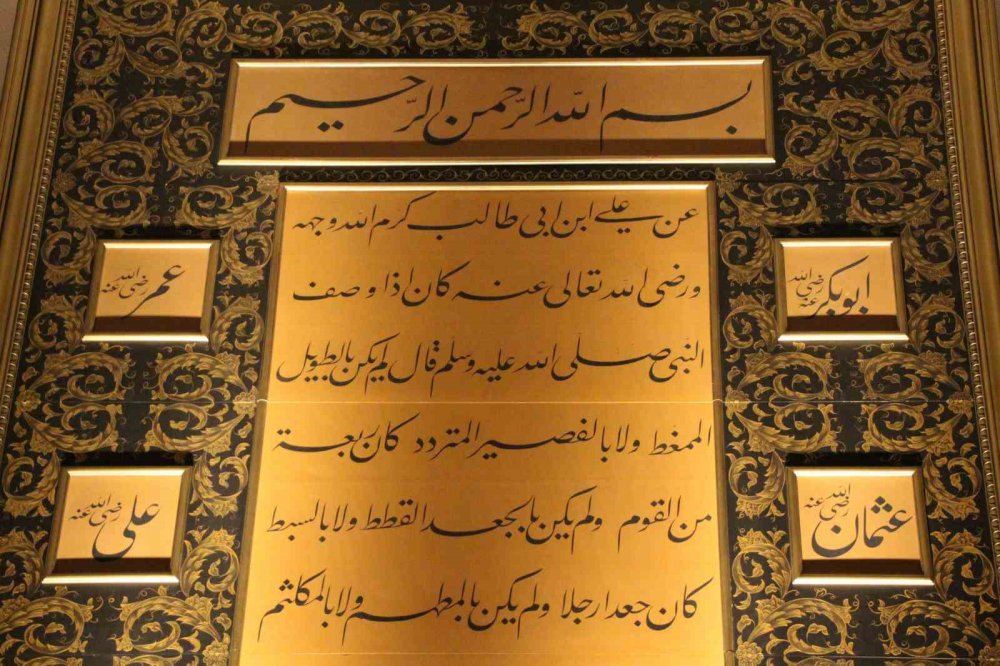 بسم الله الرحمن الرحيم
عن علي ابن ابى طالب كرم الله وجهه
ورضى الله تعالى عنه كان اذا وصف
النبى صلى الله عليه وسلم قال لم يكن بالطويل
الممغط ولا بالقصير المتردد كان ربعة
من القوم ولم يكن بالجعد القطط ولا بالسبط
كان جعدا رجلا ولم يكن بالمطهم ولا بالمكلثم
ابوبكر رضى الله عنه
عمر رضى الله عنه
عثمان رضى الله عنه
على رضى الله عنه